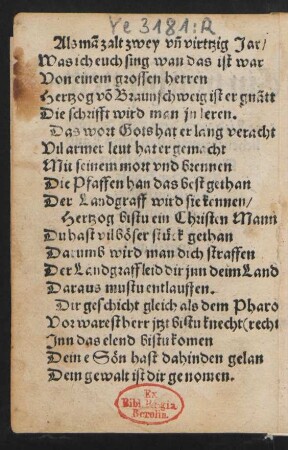 Ye 3181:R
Als mã zalt zwey vñ virtzig Jar/
Was ich euch sing wan das ist war
Von einem grossen herren
Hertzog võ Braunschweig ist er gnãtt
Die schrifft wird man jn leren.
Das wort Gots hat er lang veracht
Vil armer leut hat er gemacht
Mit seinem mort vnd brennen
Die Pfaffen han das best gethan
Der Landgraff wird sie kennen/
Hertzog bistu ein Christen Mann
Du hast vil böser stück gethan
Darumb wird man dich straffen
Der Landgraff leid dir jnn deim Land
Daraus mustu entlauffen.
Dir geschicht gleich als dem Pharo
Vor warest herr jtzt bistu knecht (recht
Jnn das elend bistu komen
Deine Sön hast dahinden gelan
Dein gewalt ist dir genomen.
Ex
Bibl. Regia
Berolin.